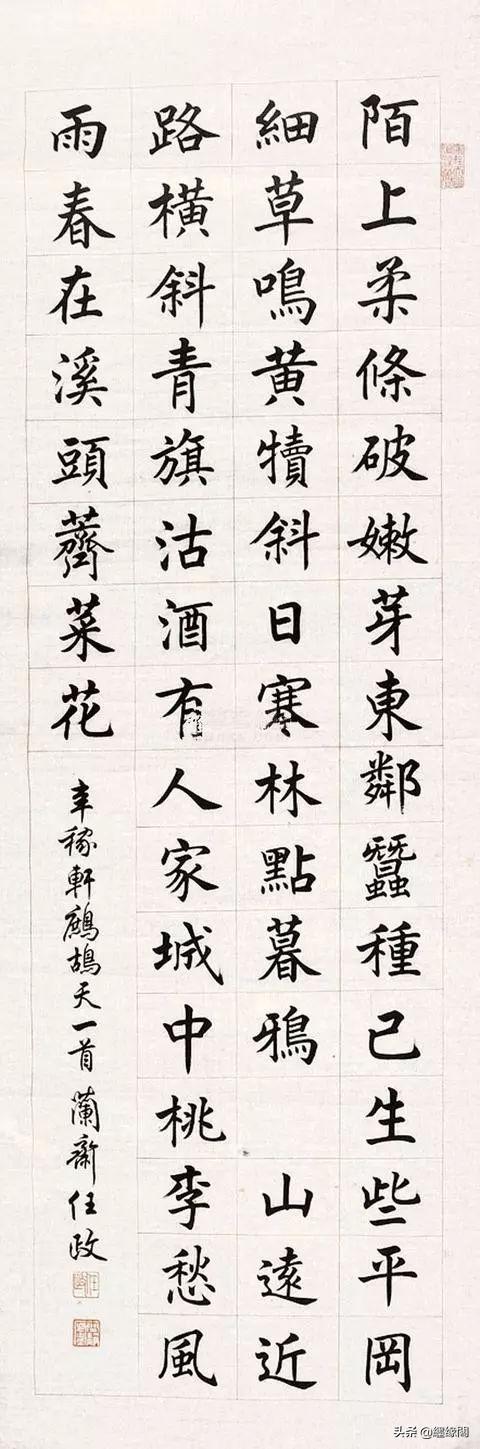 陌上柔條破嫩芽東鄰蠶種已生些平岡
細草鳴黃犢斜日寒林點暮鴉 山遠近
路橫斜青旗沽酒有人家城中桃李愁風
雨春在溪頭薺菜花
辛稼軒鷓鴣天一首 蘭齋任政
头条@纒缘閣